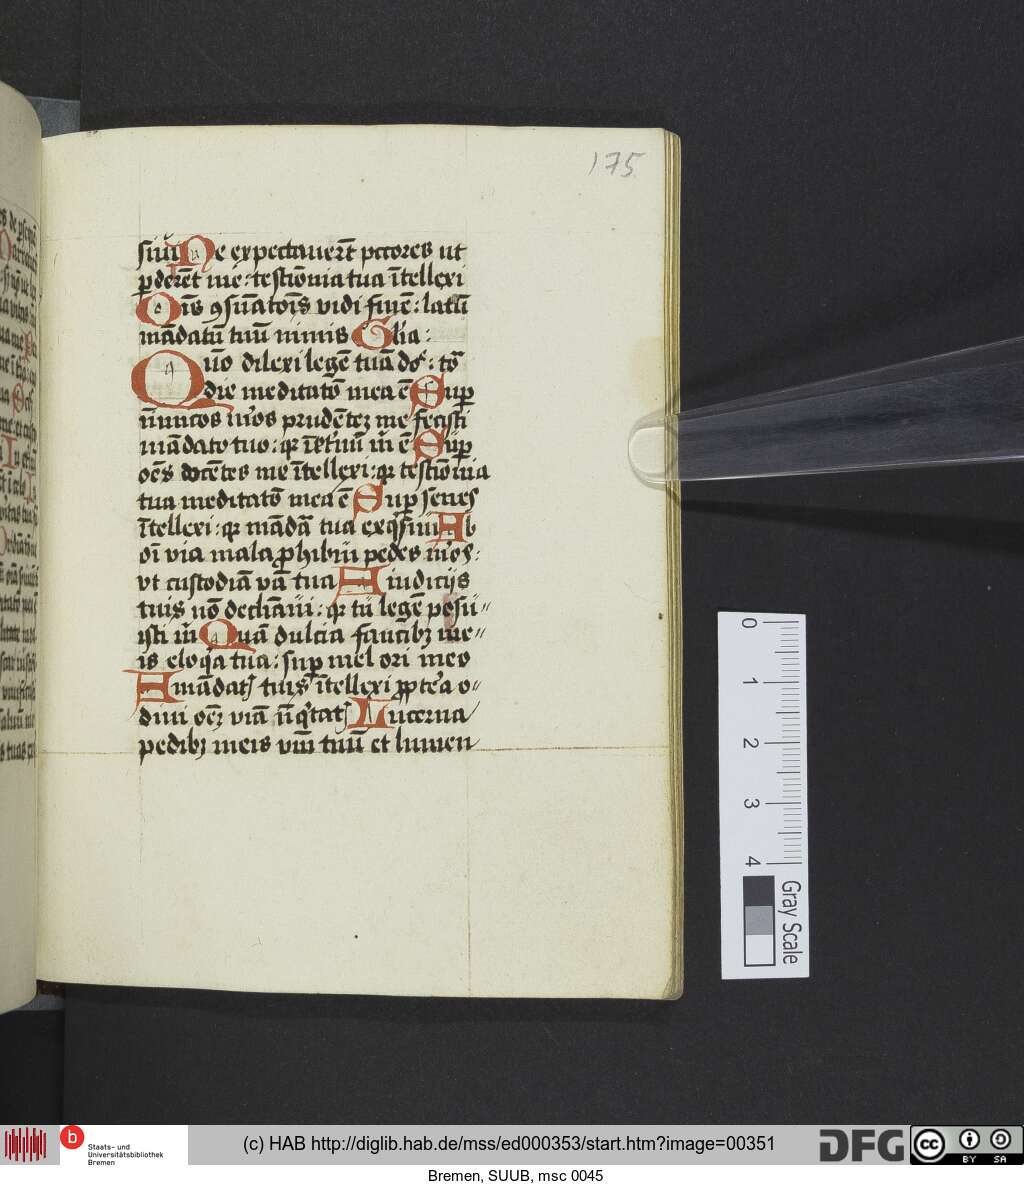 175
siui Ne expectauerūt pctores ut
ꝑderēt me: testiōnia tua ītellexi
Oīs ꝯsūatōis vidi finē: latū
mādatū tuū nimis Glīa:
Quō dilexi legē tuā dō: tō
die meditatō mea ē Suꝑ
inimicos mōs prudētē me fecisti
mādato tuo: qꝛ ī etnū m̄ ē Suꝑ
oēs docētes me ītellexi: qꝛ testiōnia
tua meditatō mea ē Suꝑ senes
ītellexi: qꝛ mādā tua exqͥsiui Ab
oī via mala ꝓhibui pedes mōs:
vt custodiā vā tua A iudicijs
tuis nō declīaui: qꝛ tu legē posu〃
isti m̄ Quā dulcia faucibꝫ me〃
is eloqͣ tua: suꝑ mel ori meo
A mādatꝭ tuis ītellexi ꝓpteͣa o〃
diui oēꝫ viā īiqͥtatꝭ Lucerna
pedibꝫ meis vm̄ tuū et lumen
0 1 2 3 4
Gray Scale
b Staats- und
Universitätsbibliothek
Bremen
(c) HAB http://diglib.hab.de/mss/ed000353/start.htm?image=00351
DFG
cc BY SA
Bremen, SUUB, msc 0045